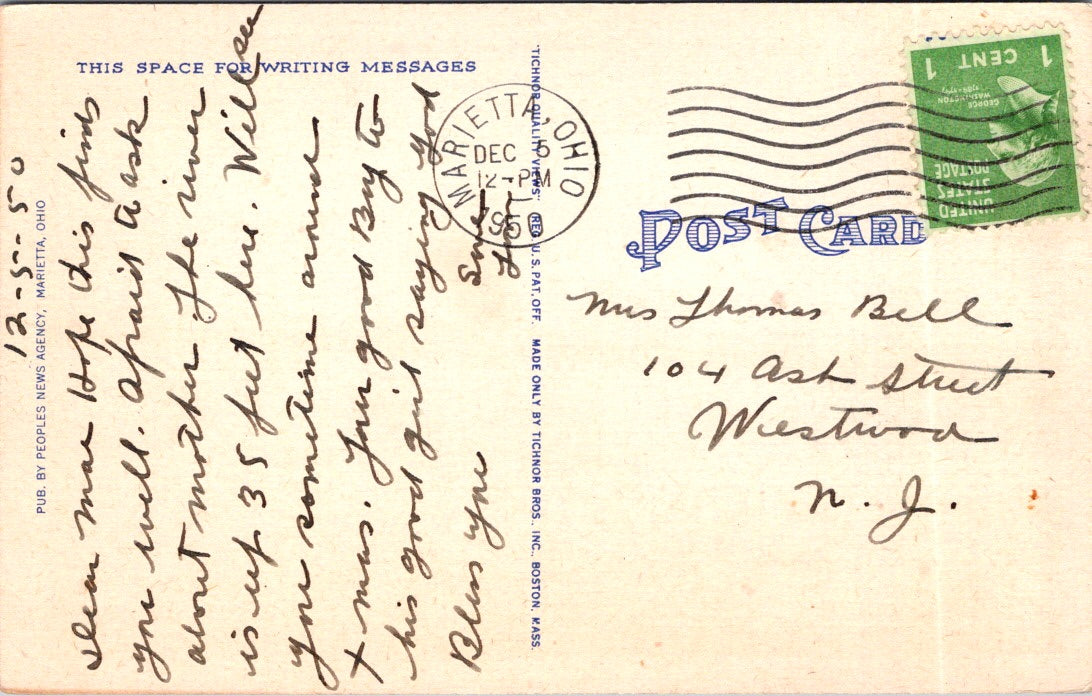 THIS SPACE FOR WRITING MESSAGES
12-5-50
Dear mae Hope this finds
you well. Afraid to ask
about mother The river
is up 35 feet here. Will see
you sometime around
Xmas. Jus good Buy to
his good girl saying god
Bless you
PUB. BY PEOPLES NEWS AGENCY, MARIETTA, OHIO
"TICHNOR QUALITY VIEWS," REG. U.S. PAT. OFF. MADE ONLY BY TICHNOR BROS., INC., BOSTON, MASS.
MARIETTA, OHIO
DEC 5
12-PM
1950
POST CARD
1 CENT 1
GEORGE
WASHINGTON
1789-1797
UNITED
STATES
POSTAGE
Mrs Thomas Bell
104 Ash Street
Westwood
N. J.